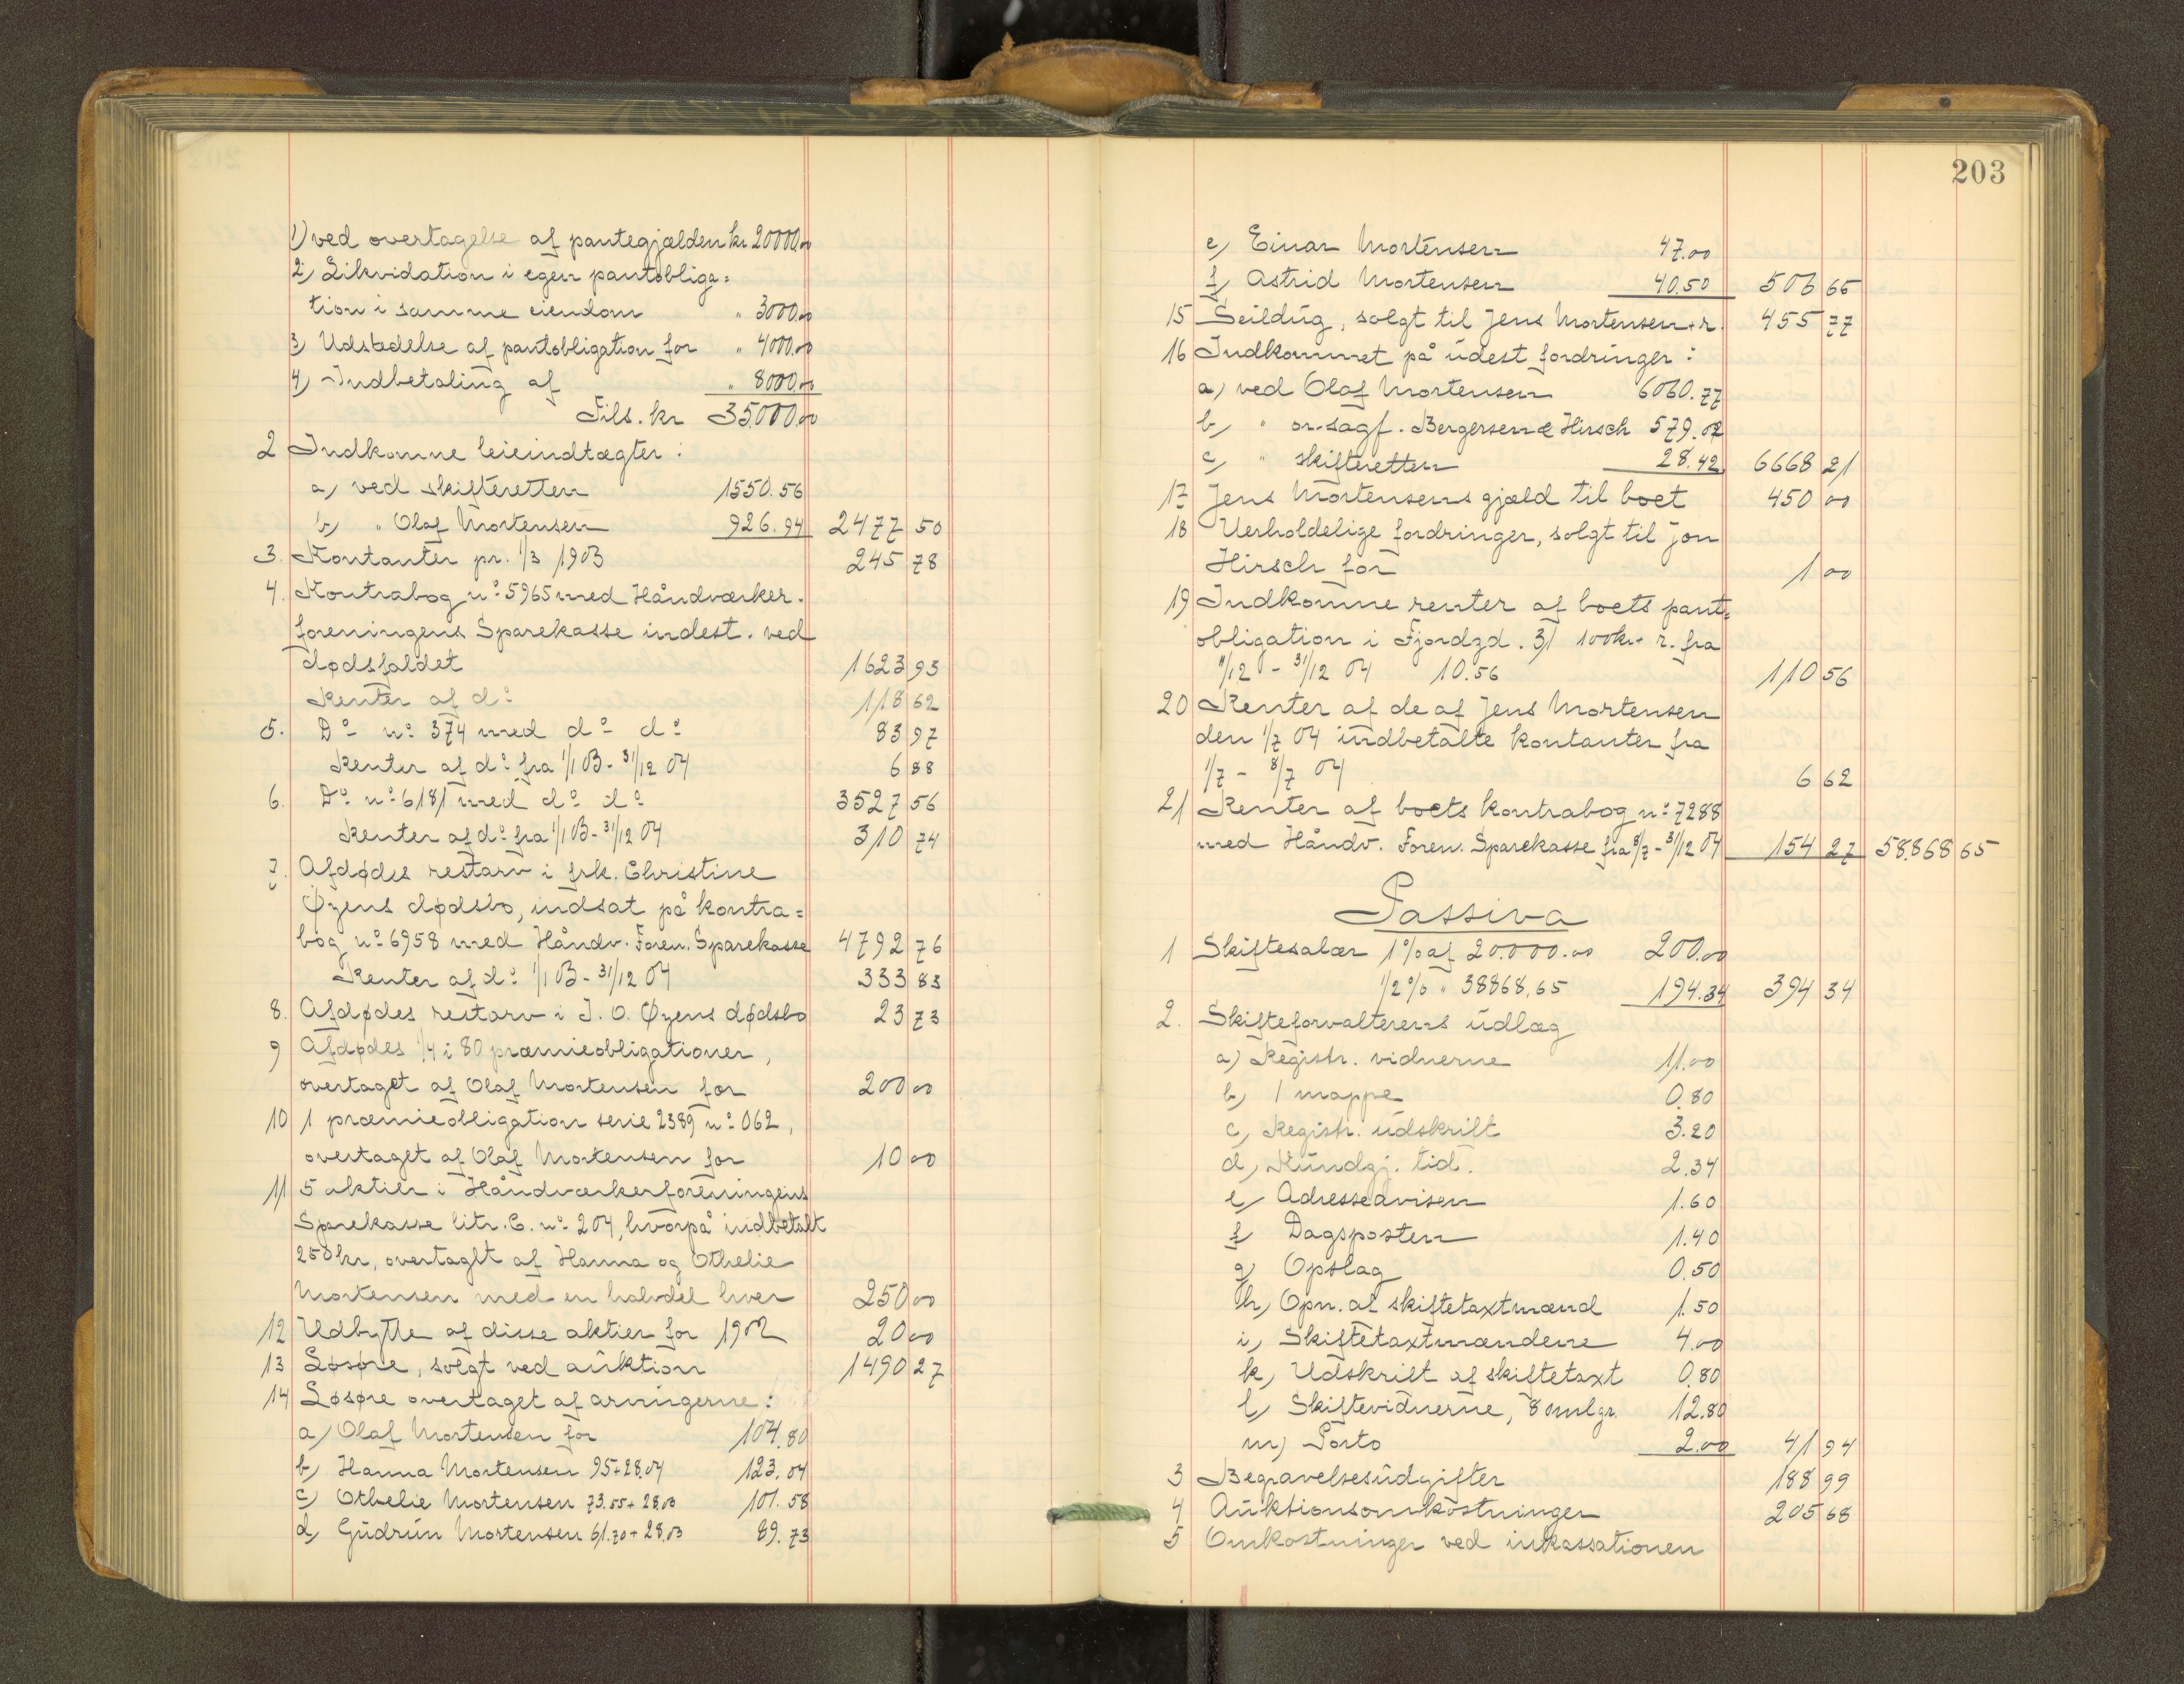 1) ved overtagelse af pantegjælden kr 20000.00
2) Likvidation i egen pantobliga=
tion i samme eiendom " 3000.00
3) Udstedelse af pantobligation for " 4000.00
4) Indbetaling af " 8000.00
Tils. kr 35000.00
2 Indkomne leieindtægter:
a) ved skifteretten 1550.56
b) " Olaf Mortensen 926.94 2477 50
3. Kontanter pr. 1/3 1903 245 78
4. Kontrabog nº 5965 med Håndværker.
foreningens Sparekasse indest. ved
dødsfaldet 1623 93
Renter af dº 118 62
5. Dº nº 374 med dº dº 83 97
Renter af dº fra 1/1 03 - 31/12 04 6 88
6. Dº nº 6181 med dº dº 3527 56
Renter af dº fra 1/1 03 - 31/12 04 310 74
7. Afdødes restarv i frk. Christine
Øyens dødsbo, indsat på kontra=
bog nº 6958 med Håndv. Foren. Sparekasse 4792 76
Renter af dº 1/1 03 - 31/12 04 333 83
8. Afdødes restarv i J. O. Øyens dødsbo 23 73
9 Afdødes 1/4 i 80 præmieobligationer,
overtaget af Olaf Mortensen for 200 00
10 1 præmieobligation serie 2389 nº 062,
overtaget af Olaf Mortensen for 10 00
11 5 aktier i Håndværkerforeningens
Sparekasse litr. C. nº 204, hvorpå indbetalt
250 kr, overtaget af Hanna og Othelie
Mortensen med en halvdel hver 250 00
12 Udbytte af disse aktier for 1902 20 00
13 Løsøre, solgt ved auktion 1490 27
14 Løsøre overtaget af arvingerne:
a) Olaf Mortensen for 104.80
b) Hanna Mortensen 95+28.04 123.04
c) Othelie Mortensen 73.55+28.03 101.58
d) Gudrun Mortensen 61.70+28.03 89.73
203
e) Einar Mortensen 47.00
f) Astrid Mortensen 40.50 506 65
15 Seildug, solgt til Jens Mortensen + r. 455 77
16 Indkommet på udest fordringer:
a) ved Olaf Mortensen 6060.77
b) " or. sagf. Bergersen & Hirsch 579.02
c) " skifteretten 28.42 6668 21
17 Jens Mortensens gjæld til boet 450 00
18 Uerholdelige fordringer, solgt til Jon
Hirsch for 1 00
19 Indkomne renter af boets pant=
obligation i Fjordgd. 31 100 kr + r. fra
11/12 - 31/12 04 10.56 110 56
20 Renter af de af Jens Mortensen
den 1/7 04 indbetalte kontanter fra
1/7 - 8/7 04 6 62
21 Renter af boets kontrabog nº 7288
med Håndv. Foren. Sparekasse fra 8/7 - 31/12 04 154 27 58868 65
Passiva
1 Skiftesalær 1 % af 20.000.00 200.00
1/2 % " 38868.65 194.34 394 34
2. Skifteforvalterens udlæg
a) Registr. vidnerne 11.00
b) 1 mappe 0.80
c) Registr. udskrift 3.20
d) Kundgj. tid. 2.34
e) Adresseavisen 1.60
f) Dagsposten 1.40
g) Opslag 0.50
h) Opn. af skiftetaxtmænd 1.50
i) Skiftetaxtmændene 4.00
k) Udskrift af skiftetaxt 0.80
l) Skiftevidnerne, 8 saml gr. 12.80
m) Porto 2.00 41 94
3 Begravelsesudgifter 188 99
4 Auktionsomkostninger 205 68
5 Omkostninger ved inkassationen